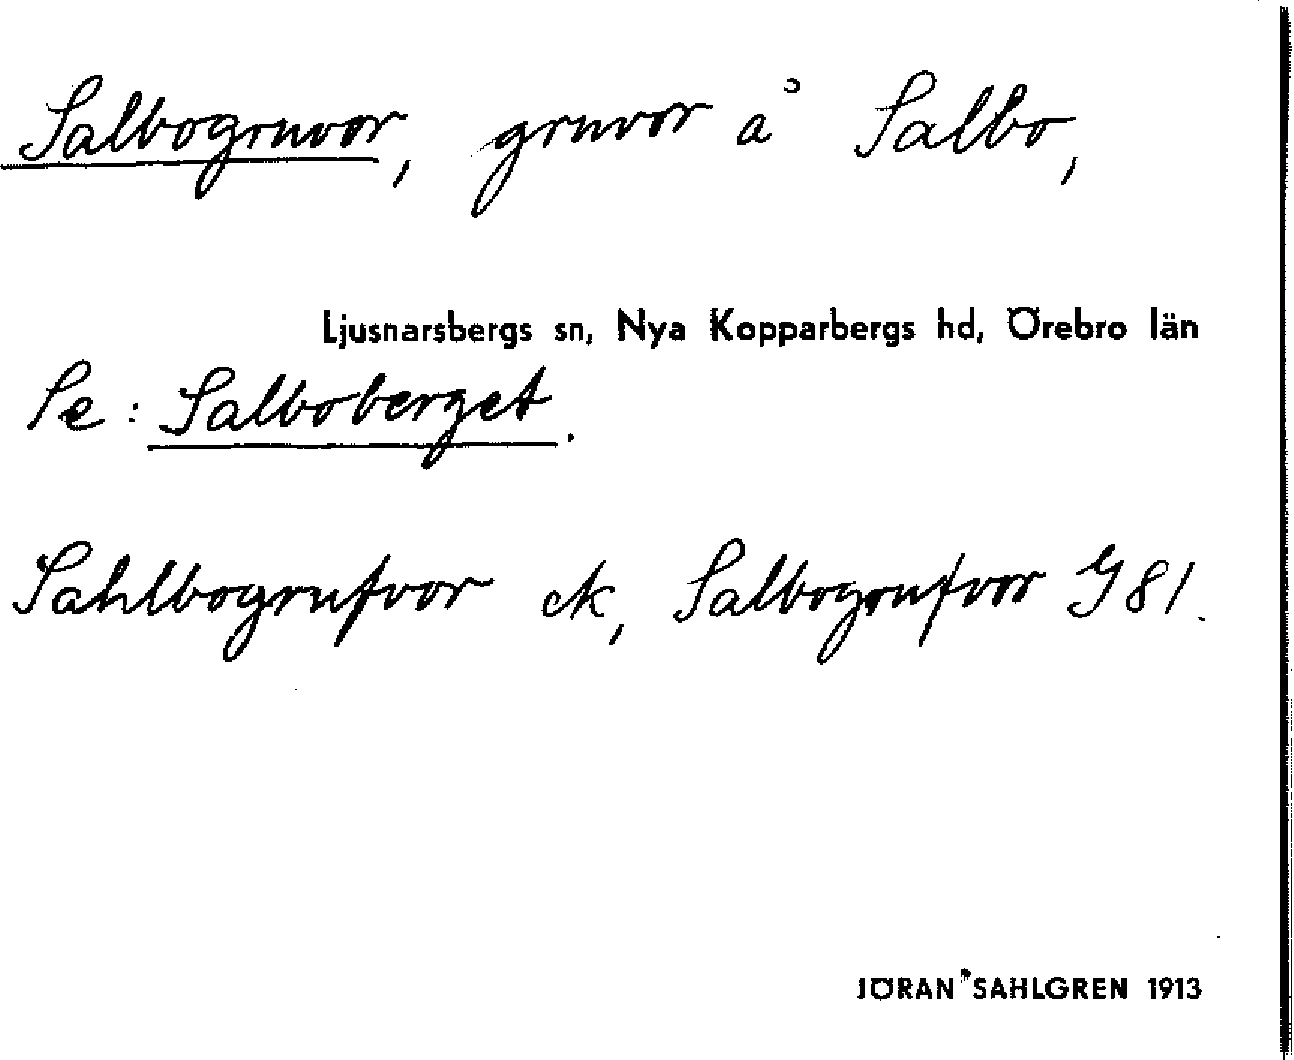 Salbogruvor, gruvor å Salbo,
Ljusnarsbergs sn, Nya Kopparbergs hd, Örebro län
Se: Salboberget.
Sahlbogrufvor ek, Salbogrufvor G 81.
JÖRAN SAHLGREN 1913